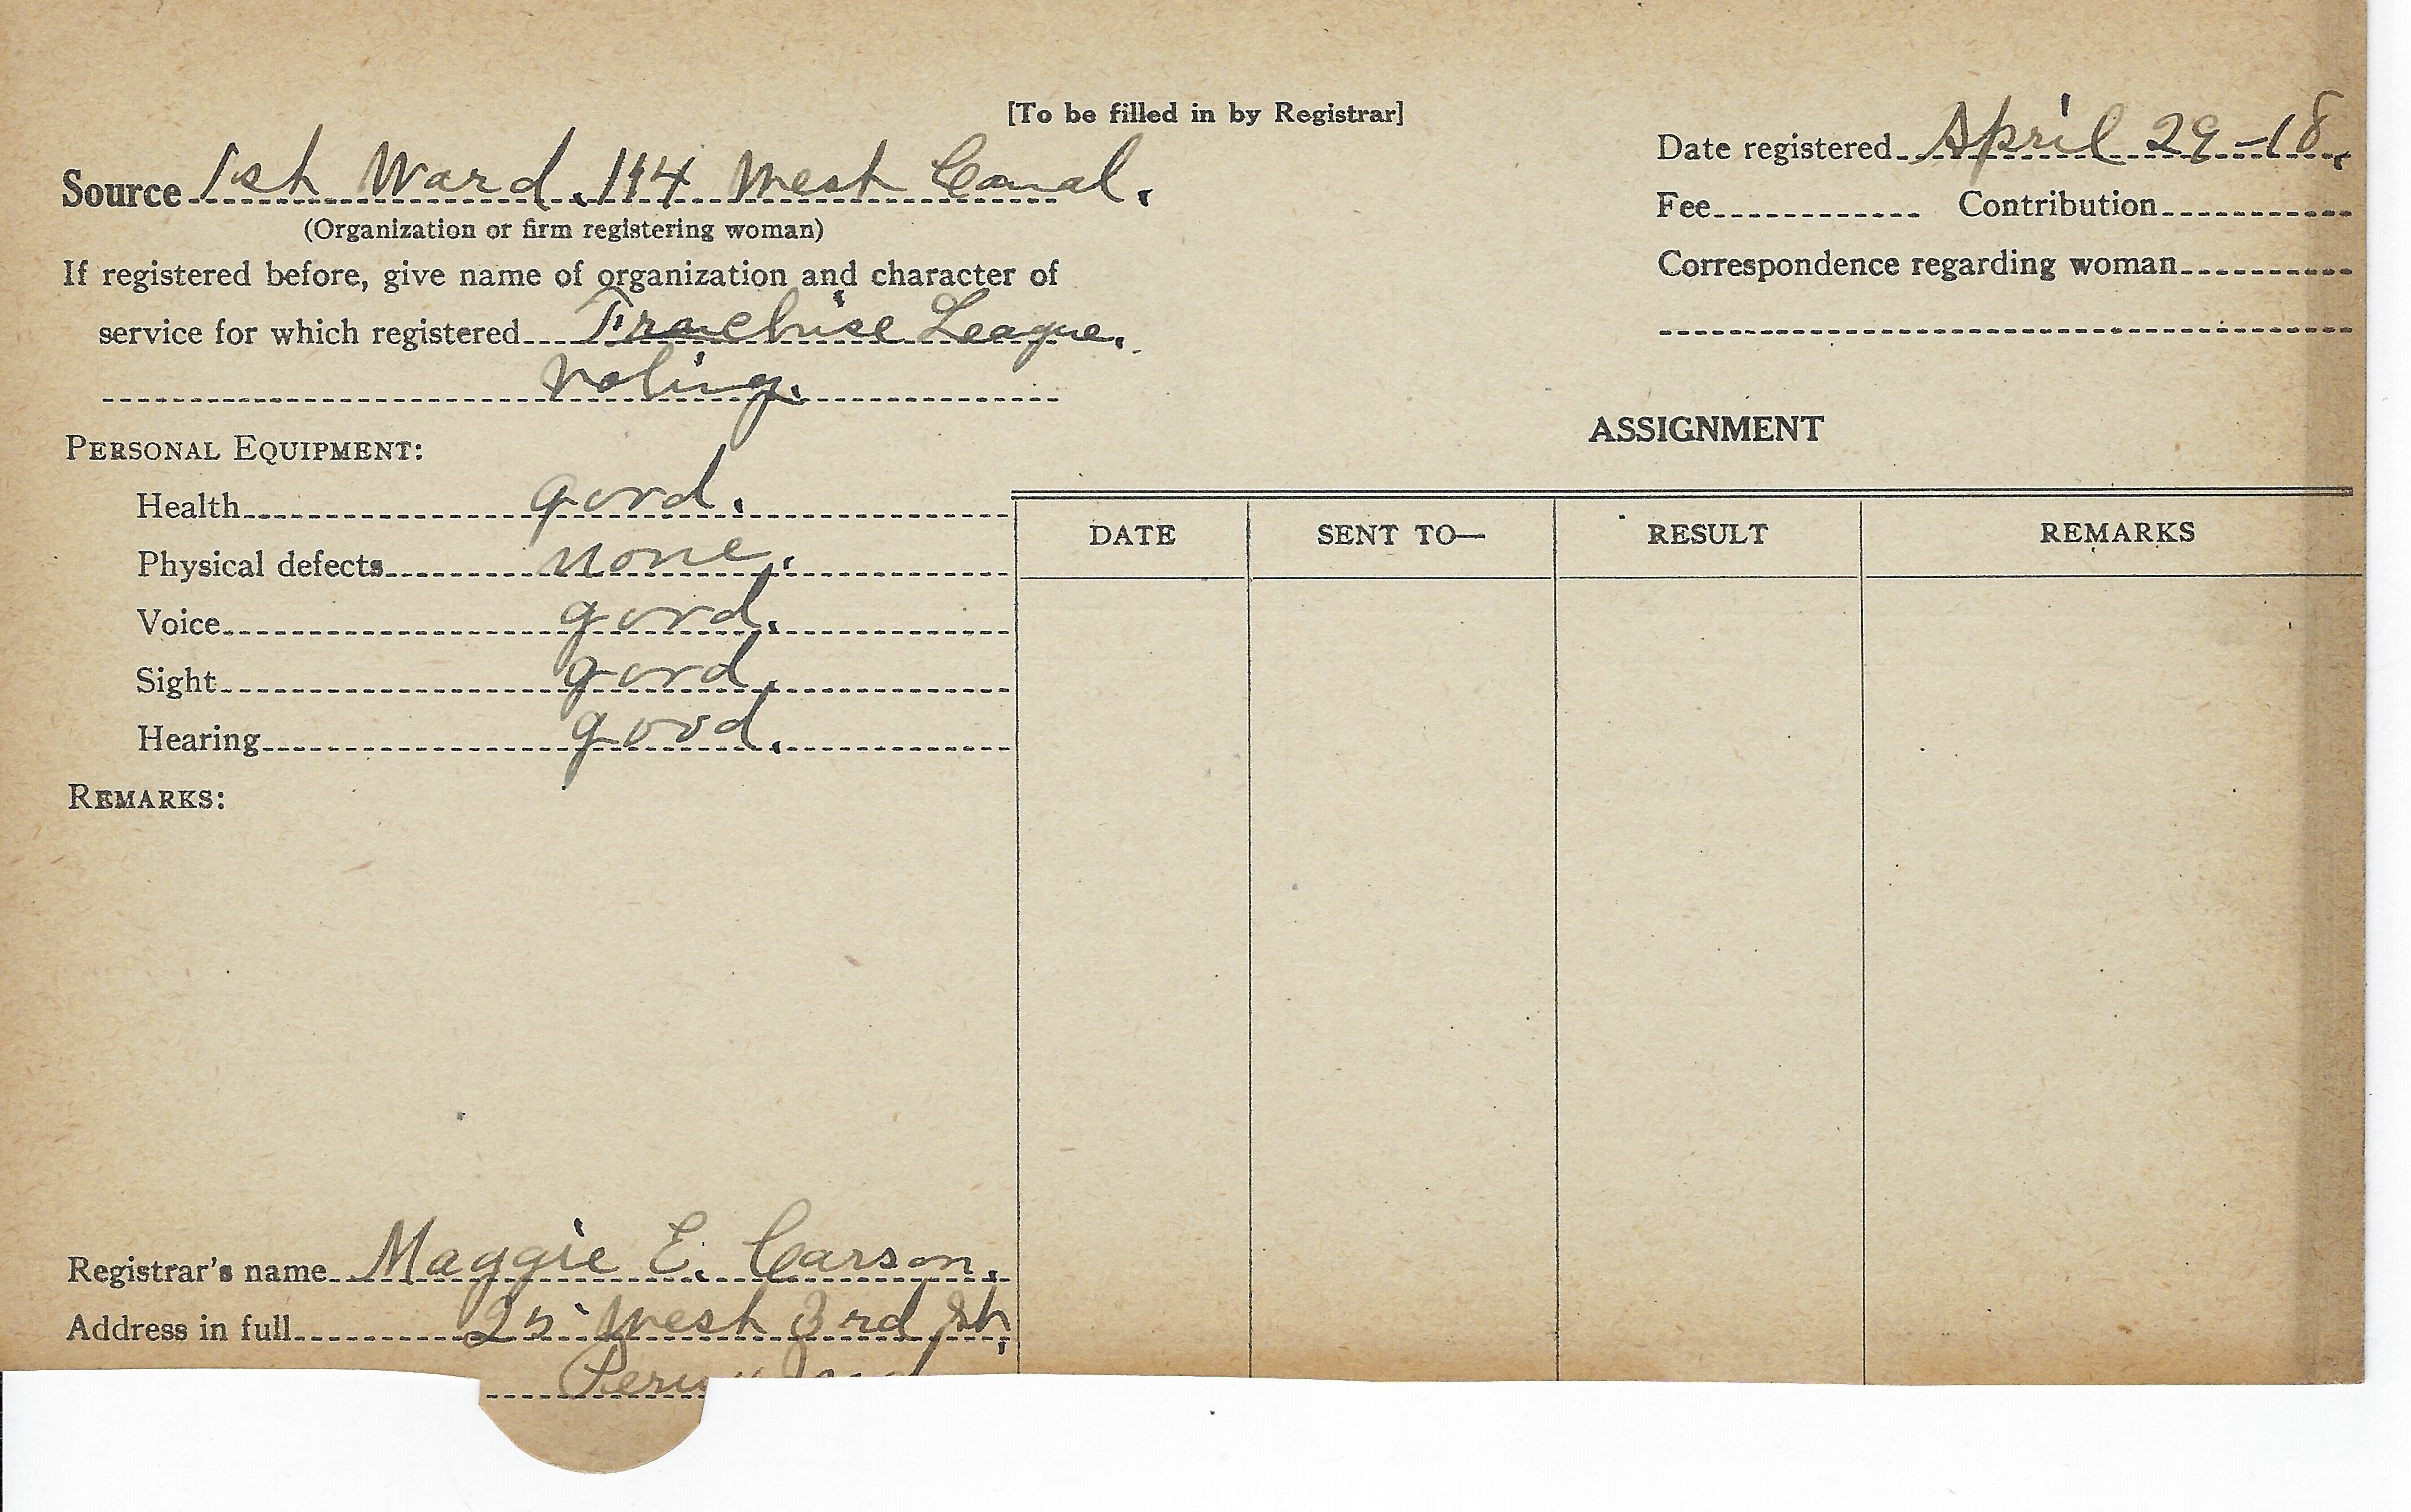 [To be filled in by Registrar]
Date registered April 29-18.
Source 1st Ward. 114 West Canal.
(Organization or firm registering woman)
Fee Contribution
If registered before, give name of organization and character of
service for which registered Franchise League.
Voting.
Correspondence regarding woman
PERSONAL EQUIPMENT:
Health good.
Physical defects none.
Voice good.
Sight good.
Hearing good.
REMARKS:
ASSIGNMENT
DATE SENT TO— RESULT REMARKS
Registrar's name Maggie E. Carson.
Address in full 25 West 3rd St,
Peru Ind